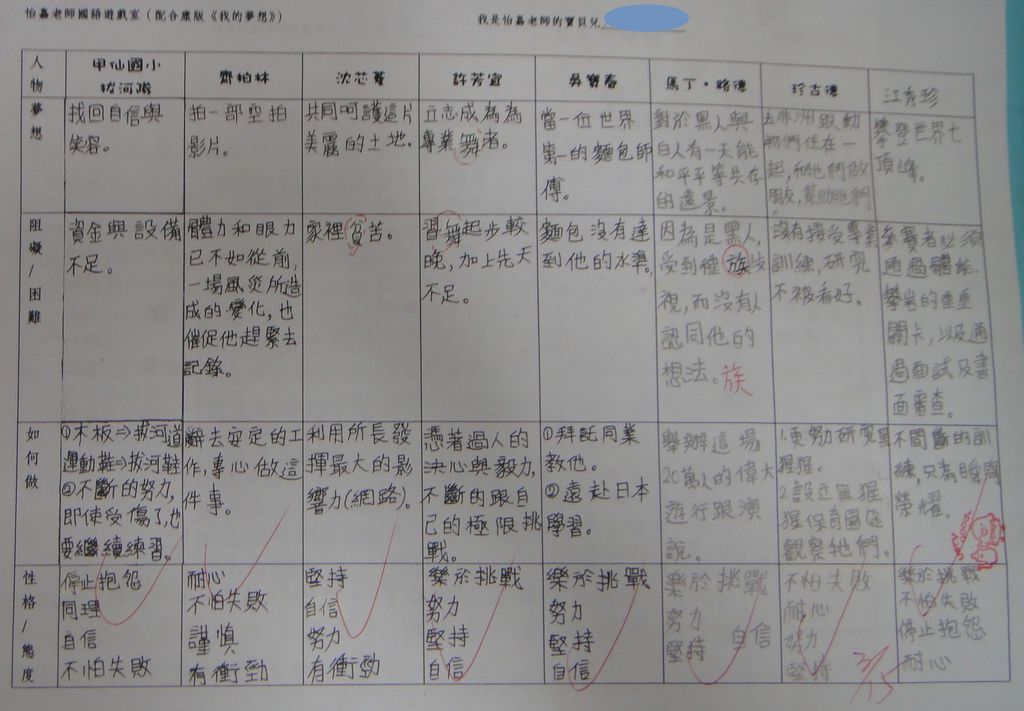 怡嘉老師國語遊戲室（配合康版《我的夢想》）
我是怡嘉老師的寶貝兒
人物
甲仙國小
拔河隊
齊柏林
沈芯菱
許芳宜
吳寶春
馬丁・路德
珍古德
江秀珍
夢想
找回自信與
笑容。
拍一部空拍
影片。
共同呵護這片
美麗的土地。
立志成為為
專業舞者。
當一位世界
第一的麵包師
傅。
對於黑人與
白人有一天能
和平平等共存
的遠景。
去非洲跟動
物們住在一
起，和他們做
朋友，幫助他們
攀登世界七
頂峰。
阻礙/困難
資金與設備
不足。
體力和眼力
已不如從前，
一場風災所造
成的變化，也
催促他趕緊去
記錄。
家裡貧苦。
習舞起步較
晚，加上先天
不足。
麵包沒有達
到他的水準。
因為是黑人，
受到種族歧
視，而沒有人
認同他的
想法。族
沒有接受專業
訓練，研究
不被看好。
參賽者必須
通過體能、
攀岩的重重
關卡，以及通
過面試及書
面審查。
如何做
①木板⇒拔河道
運動鞋⇒拔河鞋
②不斷的努力，
即使受傷了，也
要繼續練習。
辭去安定的工
作，專心做這
件事。
利用所長發
揮最大的影
響力(網路)。
憑著過人的
決心與毅力，
不斷的跟自
己的極限挑
戰。
①拜託同業
教他。
②遠赴日本
學習。
舉辦這場
20萬人的偉大
遊行跟演
說。
1.更努力研究黑
猩猩。
2.設立黑猩
猩保育園區
觀察牠們。
不間斷的訓
練，只為瞬間
榮耀。
性格/態度
停止抱怨
同理
自信
不怕失敗
耐心
不怕失敗
謹慎
有衝勁
堅持
自信
努力
有衝勁
樂於挑戰
努力
堅持
自信
樂於挑戰
努力
堅持
自信
樂於挑戰
努力
堅持 自信
不怕失敗
耐心
努力
堅持
樂於挑戰
不怕失敗
停止抱怨
耐心
3/15